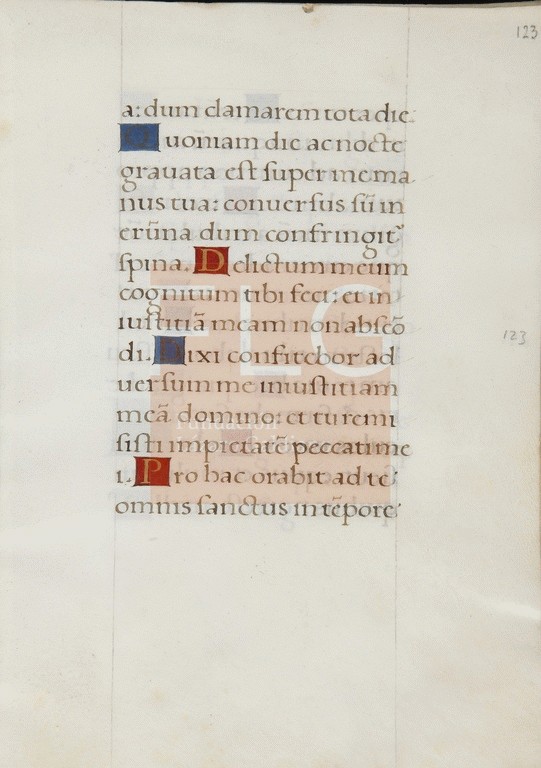 123
a: dum clamarem tota die.
Quoniam die ac nocte
grauata est super me ma
nus tua: conuersus sū in
erūna dum confringit᷑
spina. Delictum meum
cognitum tibi feci: et in
iustitiā meam non abscō
di. Dixi confitebor ad
123
uersum me iniustitiam
meā domino: et tu remi
sisti impietatē peccati me
i. Pro hac orabit ad te
omnis sanctus in tēpore
FLG
Fundación